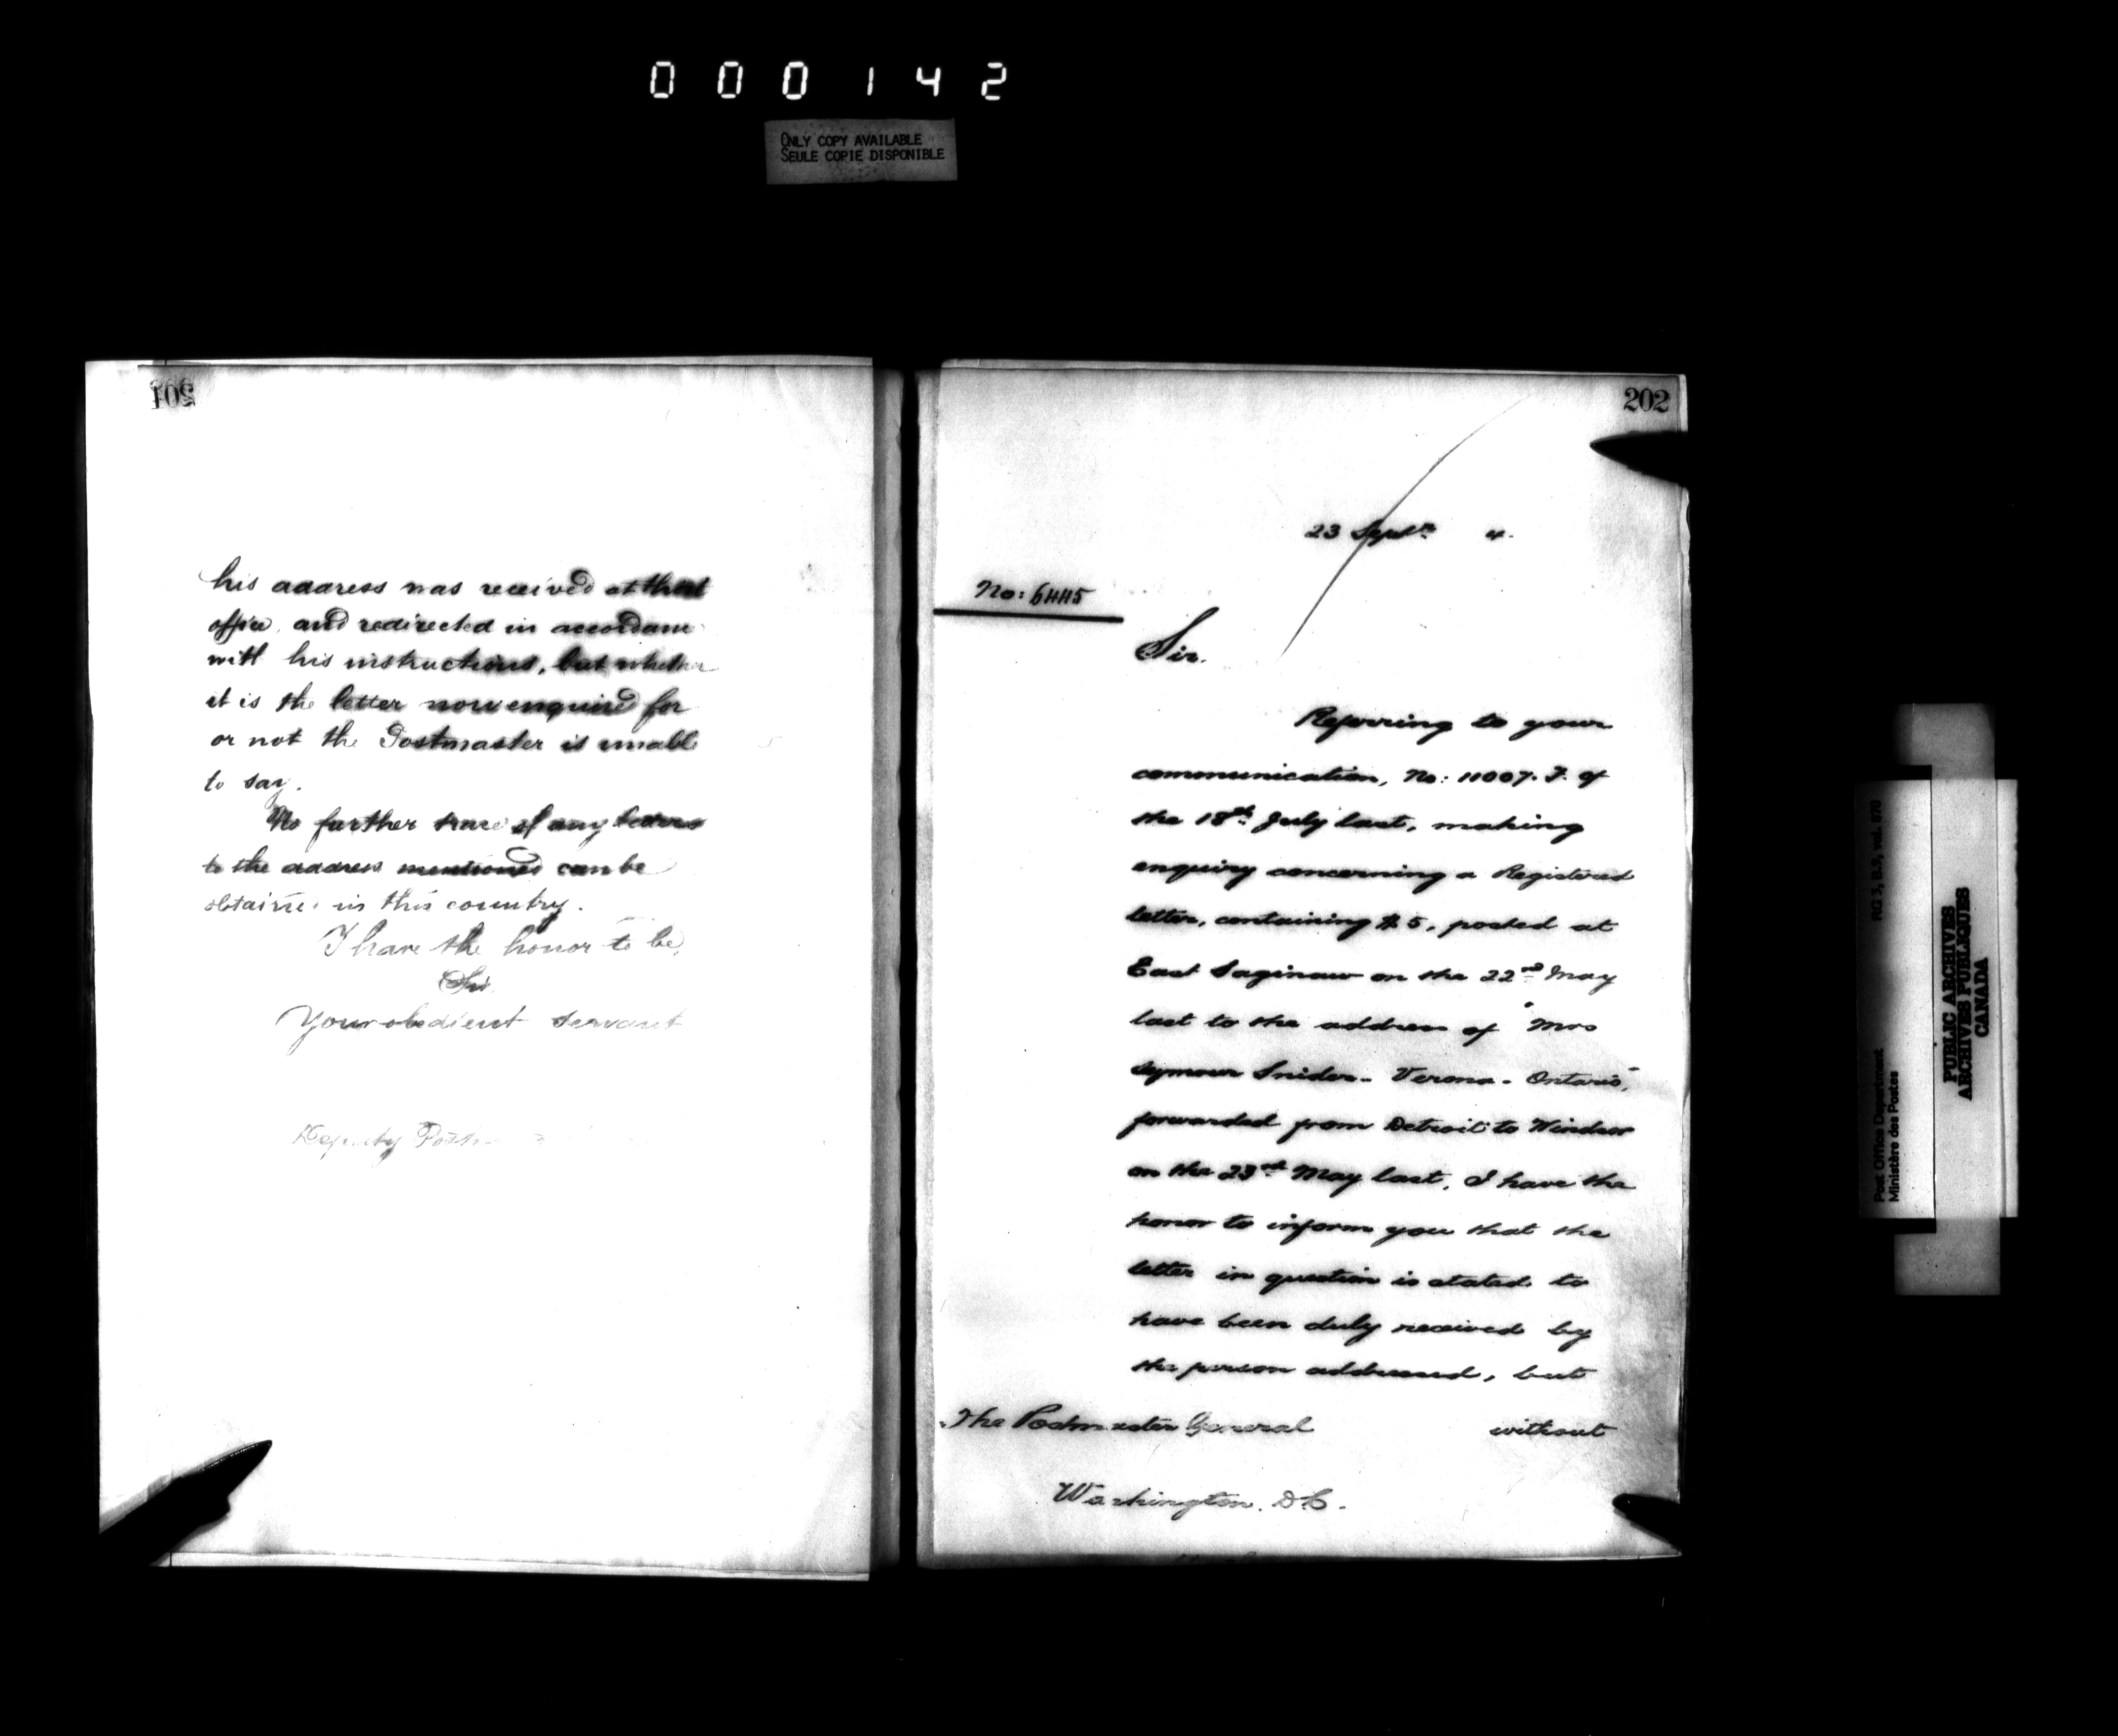 000142
ONLY COPY AVAILABLE
SEULE COPIE DISPONIBLE
201
his address was received at that
office, and redirected in accordance
with his instructions, but whether
it is the letter now enquired for
or not the Postmaster is unable
to say.
No further trace of any letters
to the address mentioned can be
obtained in this country.
I have the honor to be,
Sir
Your obedient servant
Deputy Postm
202
23 Septr. 4.
No: 6445
Sir.
Referring to your
communication, No: 11007. F. of
the 18th July last, making
enquiry concerning a Registered
letter, containing $5, posted at
East Saginaw on the 22nd May
last to the address of "Mrs
Seymour Snider - Verona - Ontario",
forwarded from Detroit to Windsor
on the 23rd May last, I have the
honor to inform you that the
letter in question is stated to
have been duly received by
the person addressed, but
without
The Postmaster General
Washington. D.C.
RG 3, B.9, vol. 670
Post Office Department
Ministère des Postes
PUBLIC ARCHIVES
ARCHIVES PUBLIQUES
CANADA